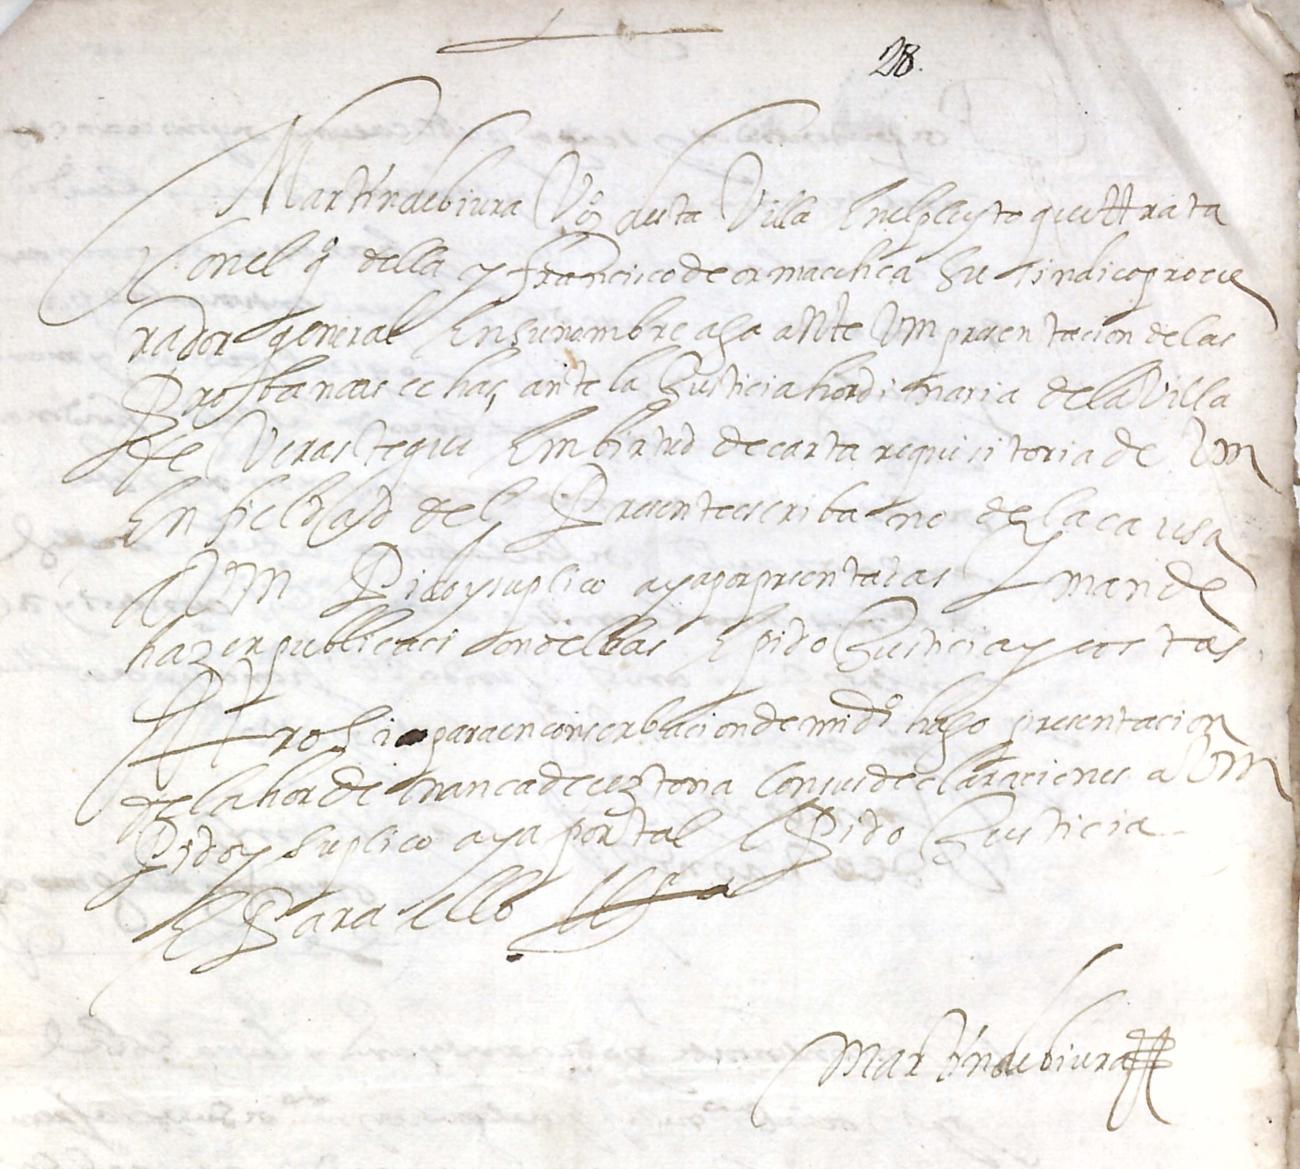 28.
Martin de biura Vº desta Villa En el pleyto que ttrata
Con el qº della y francisco de ormaechea su sindico procu
rador general En su nombre aga ante Vm presentacion de las
Probancas echas, ante la Justicia hordinaria de la Villa
de Verastegui En birtud de carta requisitoria de Vm
En fieldad del Presente escribano de la causa
A Vm Pido y suplico aya por presentadas Y mande
hazer publicacion de ellas E pido Justicia y costas
Otrosi para en conserbacion de mi drº hago presentacion
de la hordenanca de ceztona Con sus declaraciones a Vm
Pido y suplico aya por tal E Pido Justicia
E Para ello
Martin de biura